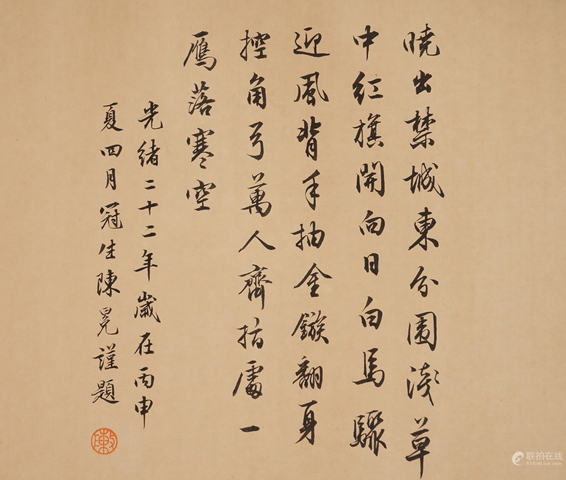 曉出禁城東分圍淺草
中紅旗開向日白馬驟
迎風背手抽金鏃翻身
控角弓萬人齊指處一
鴈落寒空
光緒二十二年歲在丙申
夏四月冠生陳冕謹題
联拍在线